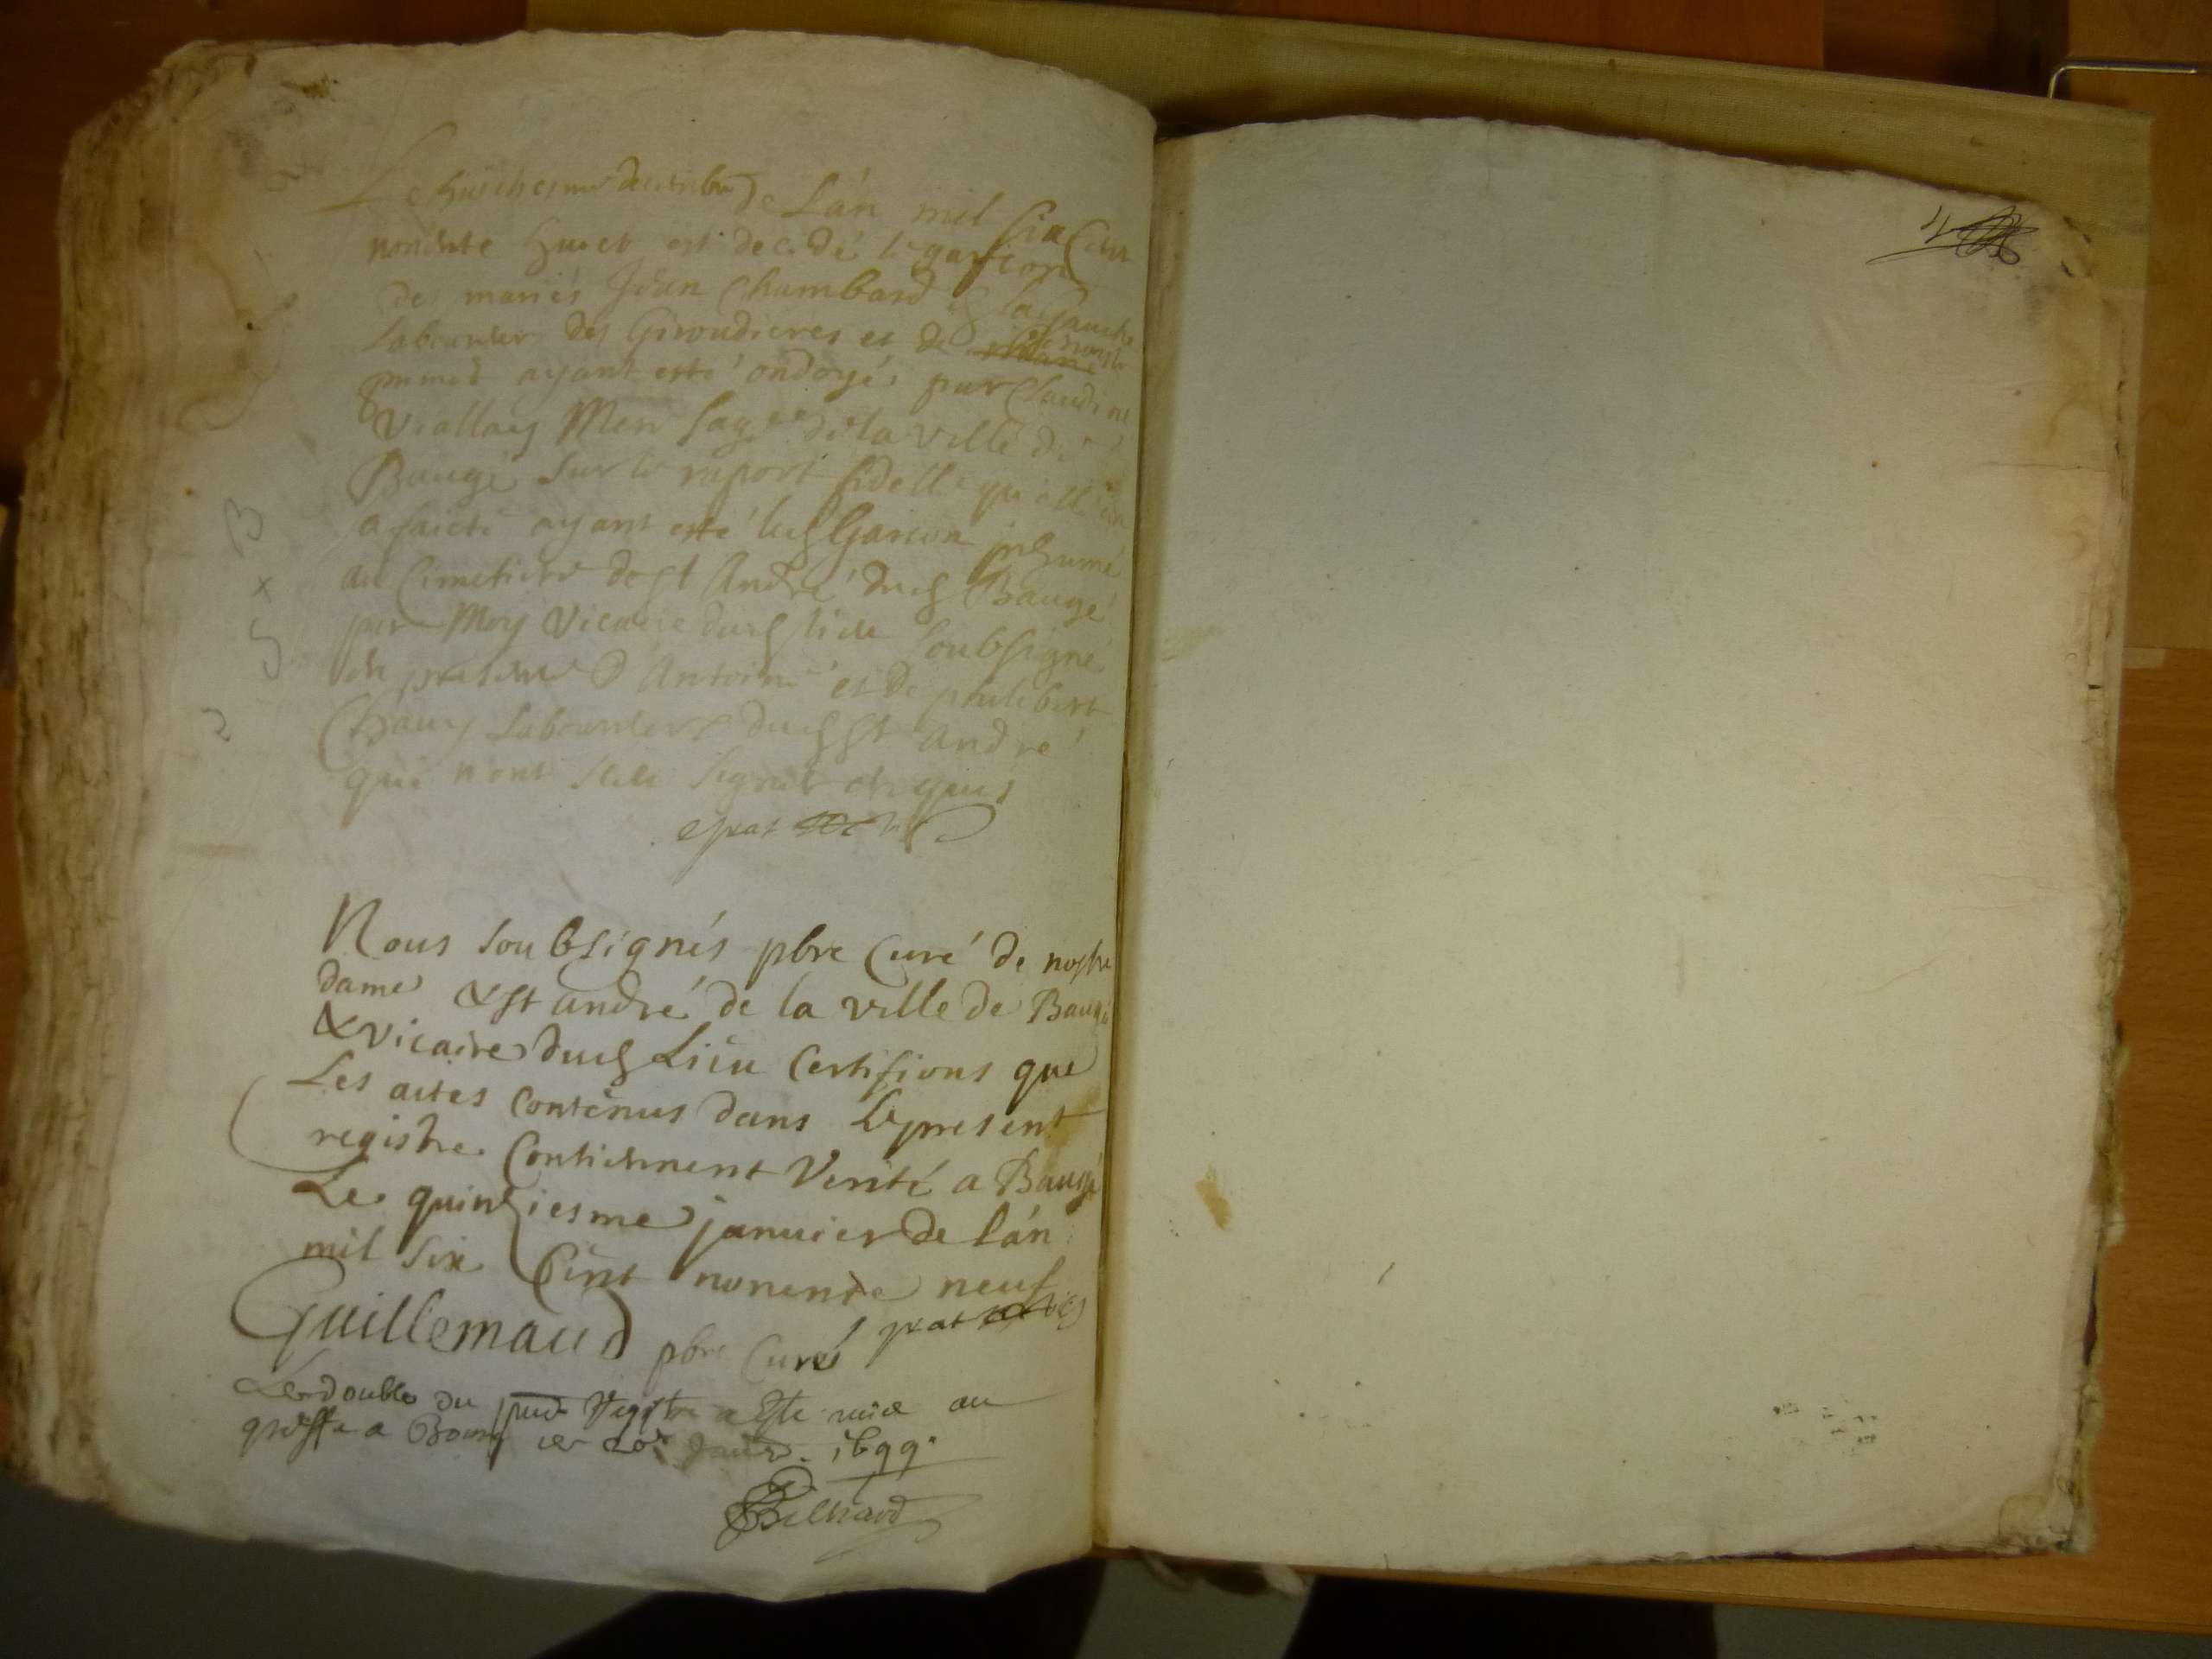 Le huicthesme decembre de L'an mil six Cent
nonente huict est decedé le garcon
des mariés Jean Chambard
Laboureur des Giroudieres et de
ayant esté ondoyé par Claudine
Viallay Mere sage de la ville de
Baugé sur le raport fidelle qu'elle en
a faict ayant esté led Garcon inhumé
au Cimetiere de st André dud Baugé
par Moy Vicaire dud lieu soubsigné
en presence d'Antoine et de philibert
Laboureurs dud st André
qui n'ont sceu signer enquis
Nous soubsignés pbre Curé de nostre
dame & st andré de la ville de Baugé
& vicaire dud Lieu Certifions que
Les actes Contenus dans Le present
registre Contiennent Verité a Baugé
Le quinziesme janvier de L'an
mil six Cent nonente neuf
Guillemaud pbre Curé
Le double du pnt Registre a esté mis au
greffe a Bourg ce 20e janv. 1699.